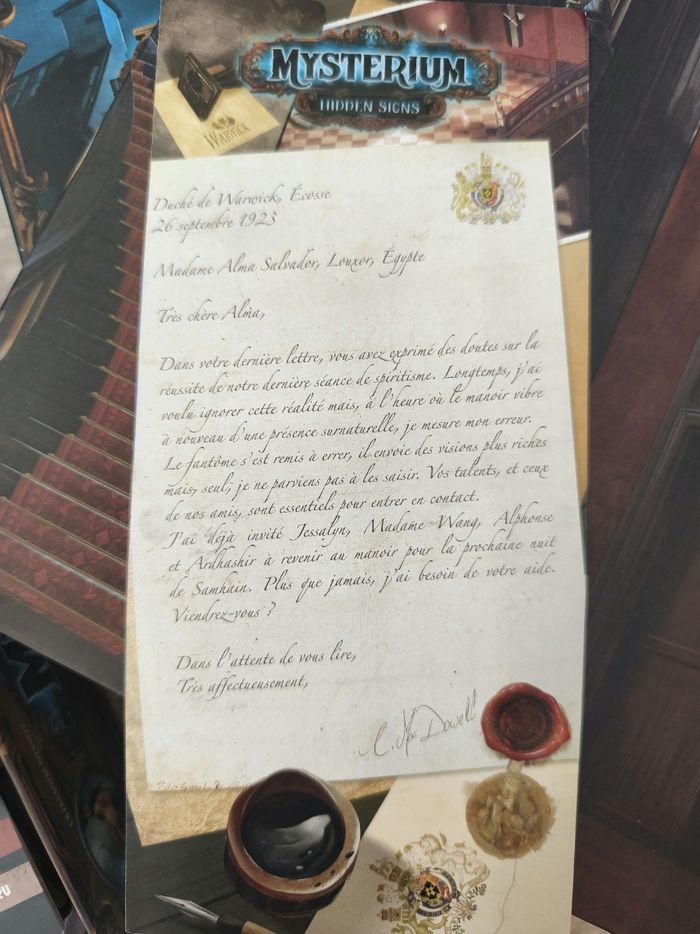 MYSTERIUM
HIDDEN SIGNS
WARWICK
Duché de Warwick, Écosse
26 septembre 1923
Madame Alma Salvador, Louxor, Égypte
Très chère Alma,
Dans votre dernière lettre, vous avez exprimé des doutes sur la
réussite de notre dernière séance de spiritisme. Longtemps, j'ai
voulu ignorer cette réalité mais, à l'heure où le manoir vibre
à nouveau d'une présence surnaturelle, je mesure mon erreur.
Le fantôme s'est remis à errer, il envoie des visions plus riches
mais, seul, je ne parviens pas à les saisir. Vos talents, et ceux
de nos amis, sont essentiels pour entrer en contact.
J'ai déjà invité Jessalyn, Madame Wang, Alphonse
et Ardhashir à revenir au manoir pour la prochaine nuit
de Samhain. Plus que jamais, j'ai besoin de votre aide.
Viendrez-vous ?
Dans l'attente de vous lire,
Très affectueusement,
C. Mac Dowell